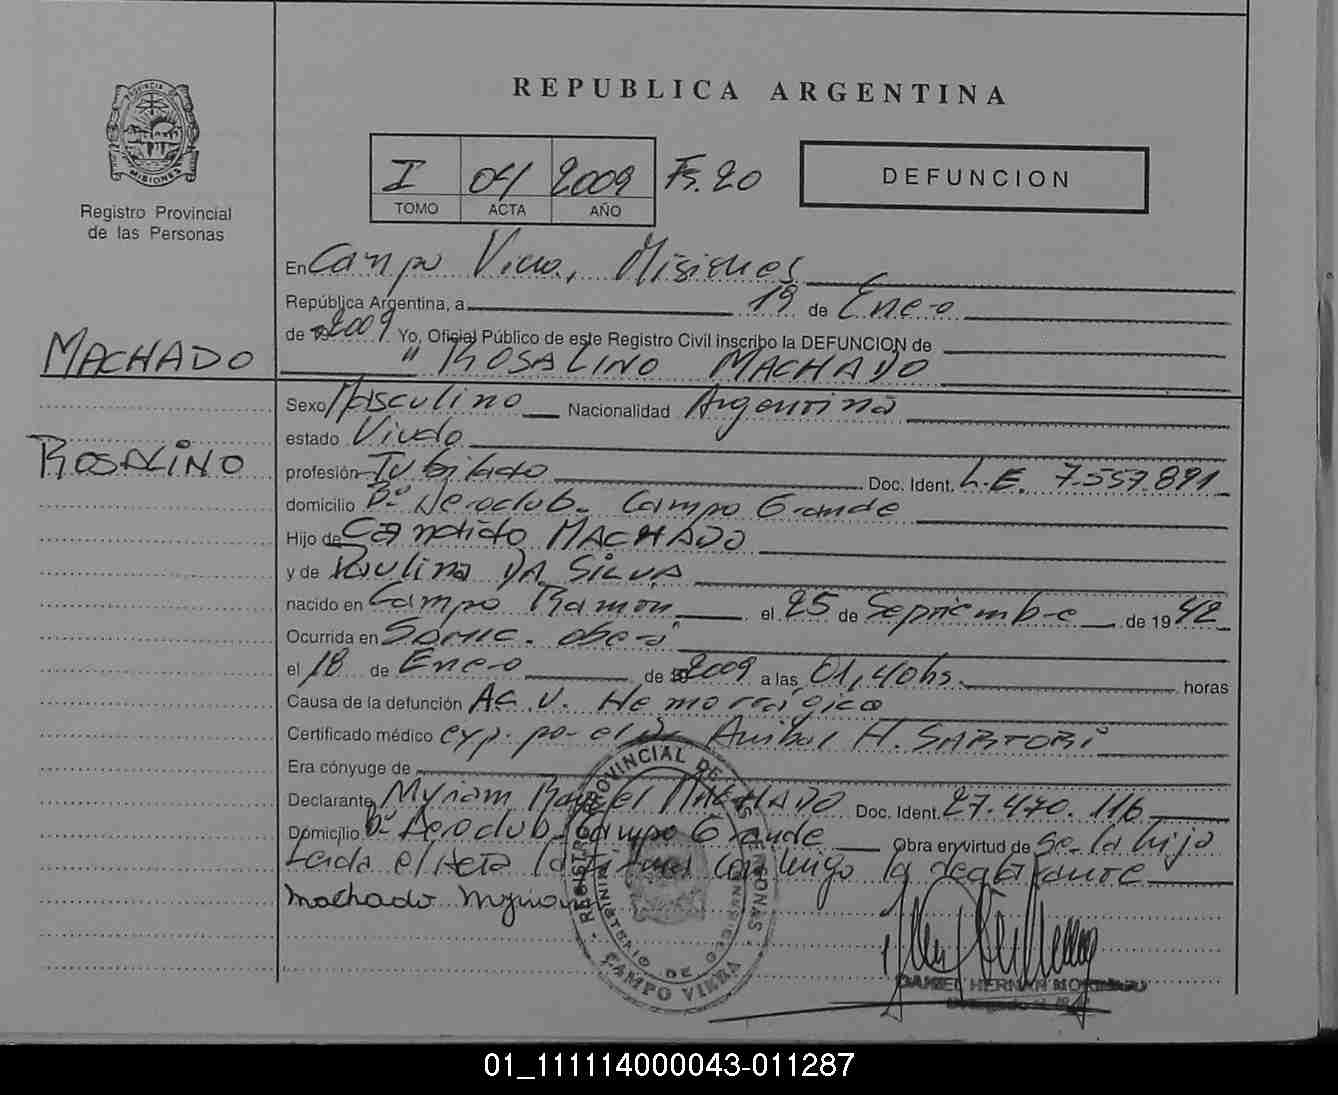 REPUBLICA ARGENTINA
PROVINCIA DE
MISIONES
Registro Provincial
de las Personas
I 04 2009 Fs. 20
TOMO ACTA AÑO
DEFUNCION
En Campo Viera, Misiones
República Argentina, a 19 de Enero
de 2009 Yo, Oficial Público de este Registro Civil inscribo la DEFUNCION de
MACHADO
" ROSALINO MACHADO
Sexo Masculino Nacionalidad Argentina
estado Viudo
ROSALINO
profesión Jubilado Doc. Ident. L.E. 7.557.891
domicilio Bº Aeroclub - Campo Grande
Hijo de Candido MACHADO
y de Paulina DA SILVA
nacido en Campo Ramón el 25 de Septiembre de 1942
Ocurrida en SAMIC. Oberá
el 18 de Enero de 2009 a las 01,40hs. horas
Causa de la defunción Ac. V. Hemorrágico
Certificado médico exp. por el Dr. Anibal H. SARTORI
Era cónyuge de
Declarante Myriam Raquel MACHADO Doc. Ident. 27.470.116
Domicilio Bº Aeroclub - Campo Grande Obra en virtud de Ser la hija
Leida el Acta la firma conmigo la declarante
Machado Myriam
REGISTRO PROVINCIAL DE LAS PERSONAS
MINISTERIO DE GOBIERNO
CAMPO VIERA
DANIEL HERNAN
01_111114000043-011287